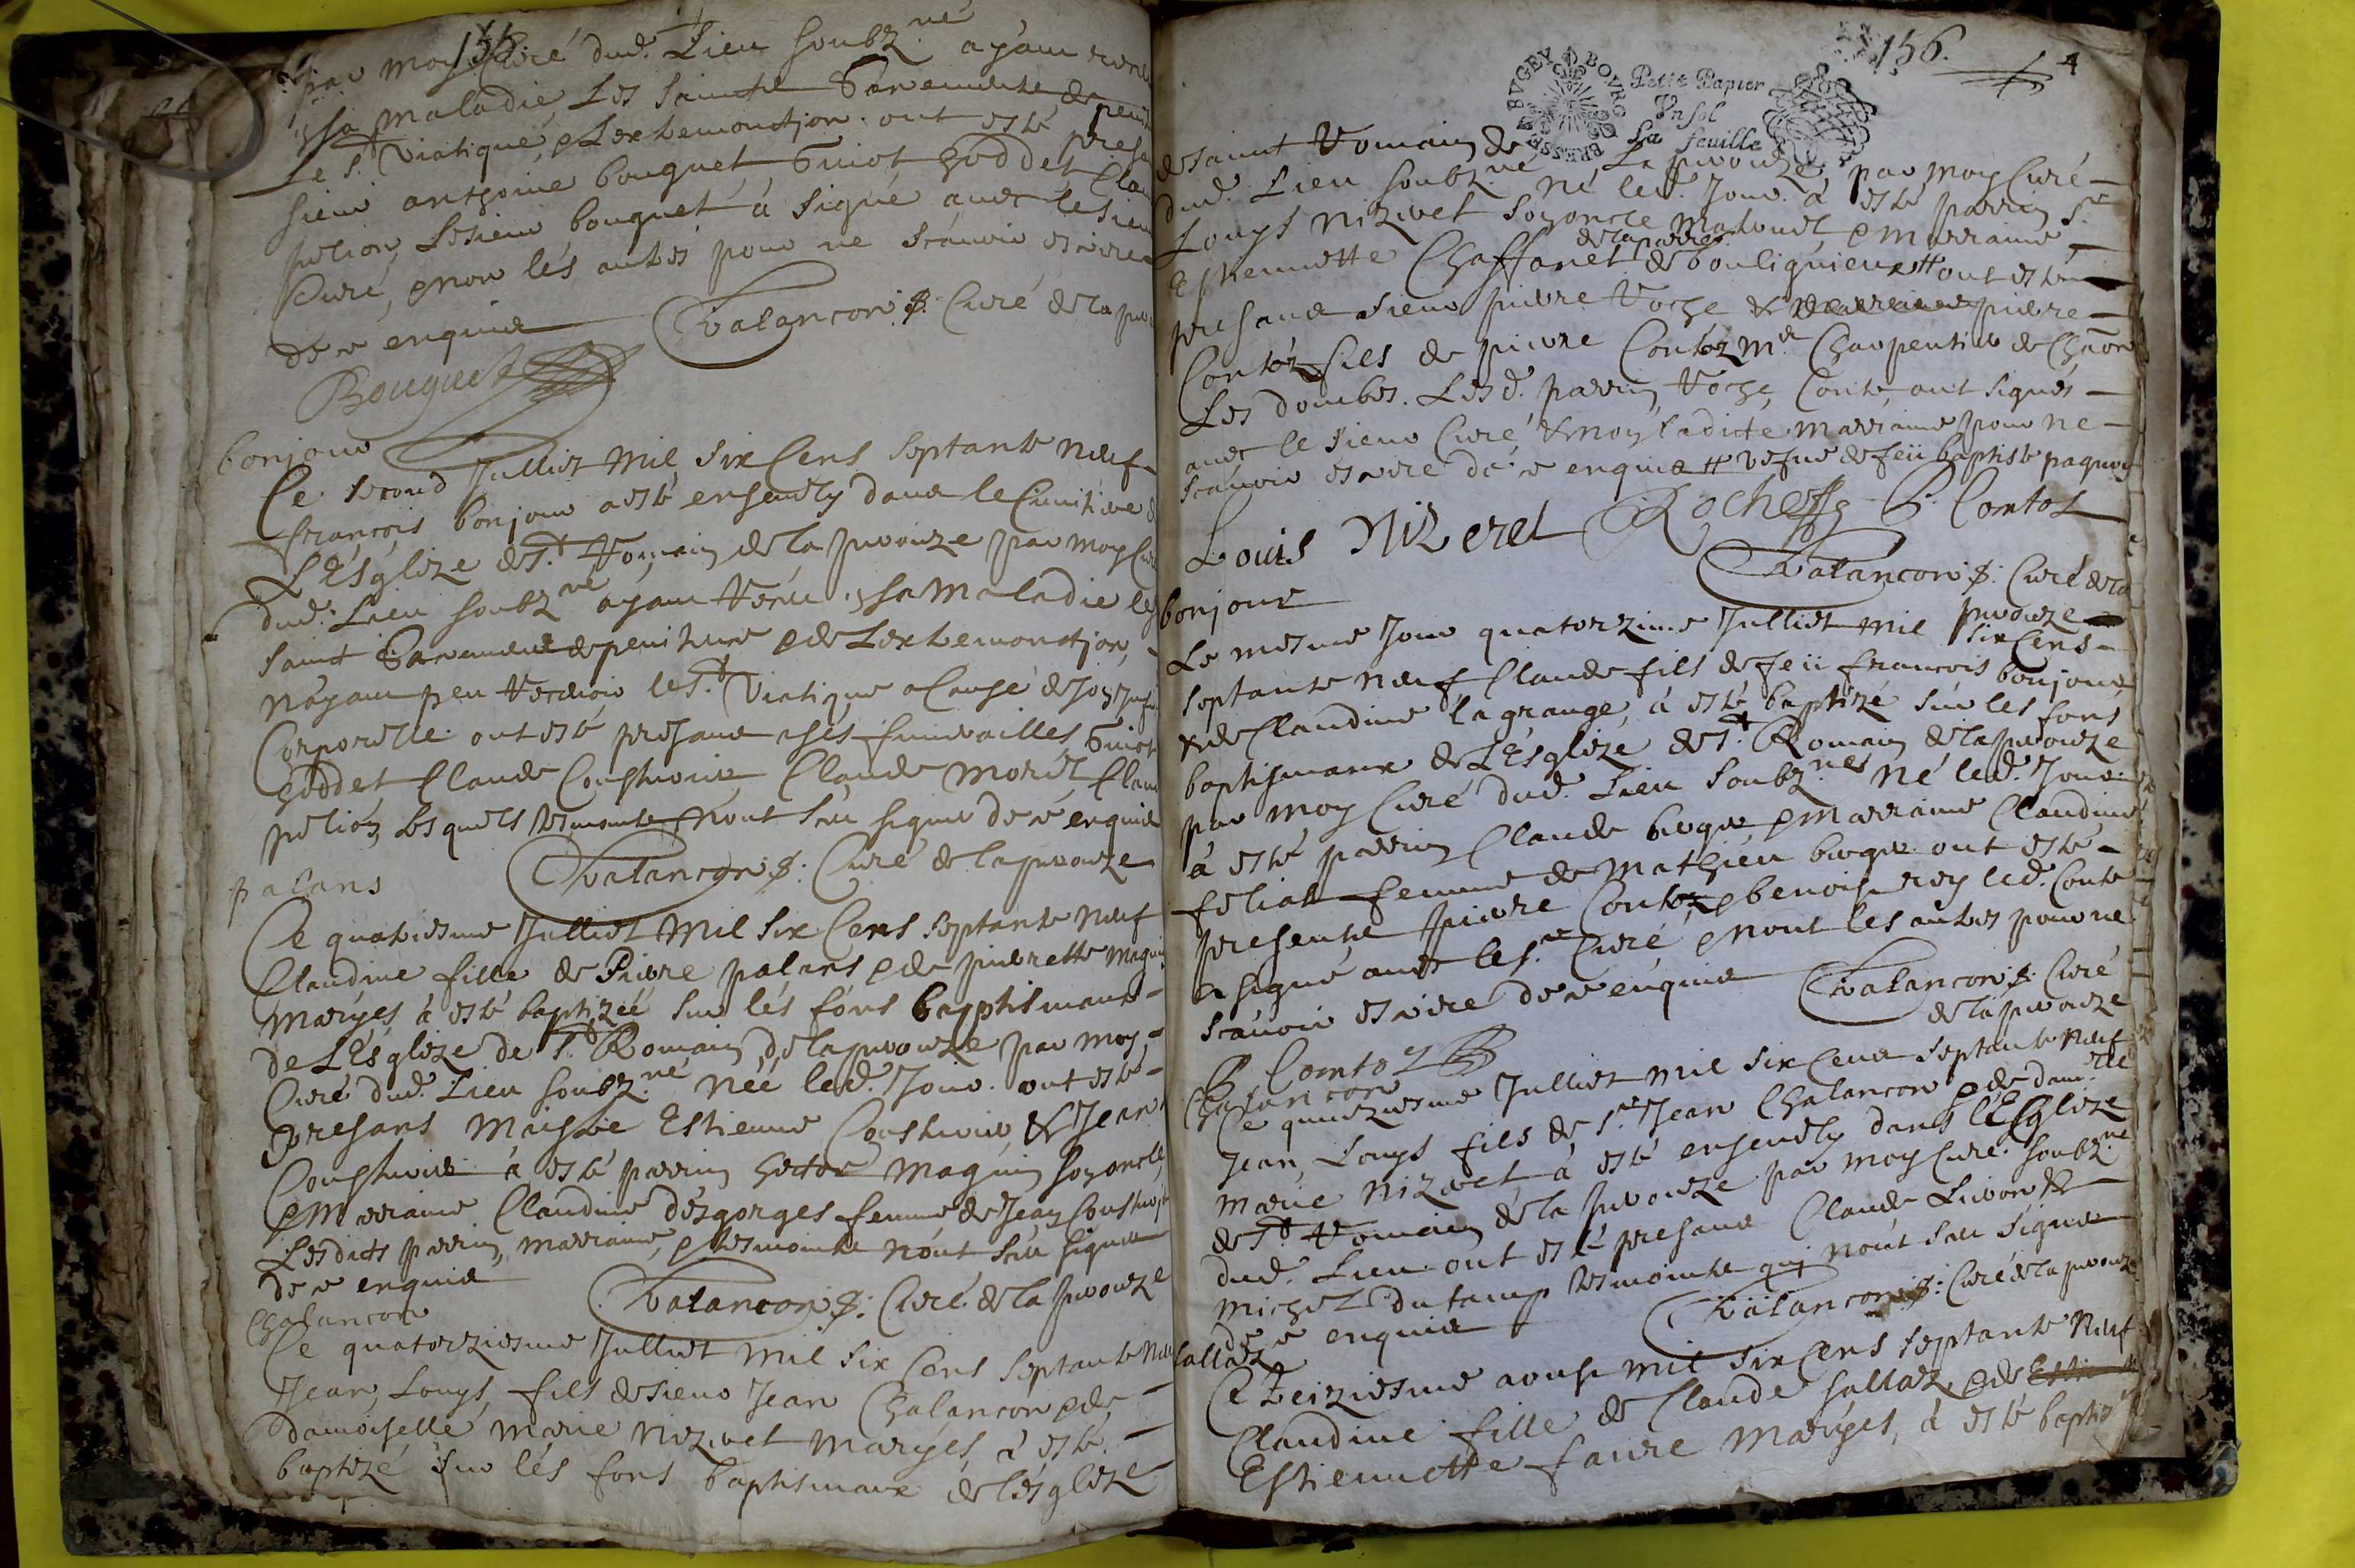 par moy Curé dud. Lieu soubz.né ayant
sa maladie Les saincts Sacrements de
Le S.t Viatique, & Lextremonction. ont esté
sieur anthoine bouquet, Guiot goddet Clau
pelion, Lesieur bouquet à signé avec lesieur
Curé, & non lés autrés pour ne scavoir escrire
de ce enquis Chalancon p. Curé de la
Bouquet
bonjour
Ce second Julliet Mil six Cens septante neuf
francois bonjour a esté ensevely dans le Cimitiere
LEsglize de S.t Romain de la peirouze par moy Curé
dud. Lieu soubz.né ayant receu sa maladie les
sainct Sacrements de penitence & de Lextremonction,
Nayant peu recevoir le S.t Viatique a Cause de
Corporelle. ont esté presans a sés funerailles, Guiot
goddet Claude Cousturier, Claude morél, Claude
pelion, Lesquels tesmoints n'ont sceu signer de ce enquis
Chalancon p. Curé de la peirouze
palans
Ce quatriesme Julliet Mil Six Cens septante Neuf
Claudine fille de Pierre palans & de pierrette magnin
Mariés, à esté baptizéé sur lés fons baptismaux
de LEsglize de S.t Romain de la peirouze par moy
Curé dud. Lieu soubz.né néé led. Jour. ont esté
presans Maistre Estienne Cousturier, & Jean
Cousturier à esté parrin hector Magnin soyoncle,
& Marraine Claudine désgorges femme de Jean Cousturier
Lesdicts parrin, marraine, & tesmointe n'ont sceu signer
de ce enquis Chalancon p. Curé de la peirouze
Chalancon
Ce quatorziesme Julliet mil six Cens septante Neuf
Jean, Louys, fils de sieur Jean Chalancon & de
damoiselle Marie Nizeret Mariés, à esté
baptizé sur lés fons baptismaux de lésglize
156. 4
BUGEY BOURG BRESSE
Petit Papier
Un sol
La feuille
de sainct Romain de La peirouze par moy Curé
dud. Lieu soubz.né Né led. Jour à esté parrin S.r
Louys Nizeret soyoncle Maternel, & Marraine
Esthiennette Chaffanet de la parroisse de bouligneux # ont esté
presans sieur pierre Roche & pierre
Contoz fils de pierre Contoz M.e Charpentier de Chãon
Les dombes. Lesd. parrin, Roche, Conte, ont signés
avec le sieur Curé & non ladicte marraine pour ne
scavoir escrire de ce enquis # vefve de feü baptiste
Louis Nizeret Roche P. Comtoz
Chalancon p. Curé de la
peirouze
bonjour
Le mesme Jour quatorzime Julliet mil six Cens
septante neuf Claude fils de feü francois bonjour
& de Claudine lagrange, à esté baptizé sur les fons
baptismaux de LEsglize de S.t Romain de la peirouze
par moy Curé dud. Lieu soubz.né Né led. Jour.
à esté parrin Claude & Marraine Claudine
feliat femme de Mathieu ont esté
presents pierre Contoz, & benoist rey led. Conte
a signé avec le S.r Curé, & nont les autres pour ne
scavoir escrire de ce enquis Chalancon p. Curé
de la peirouze
P. Comtoz
Chalancon
Ce quinziesme Julliet mil six Cens septante Neuf
Jean Louys fils de S.r Jean Chalancon & de dam.lle
Marie Nizeret à esté ensevely dans lEsglize
de S.t Romain de la peirouze par moy Curé soubz.né
dud. Lieu ont esté presans Claude &
Michel dutamp tesmointe qui n'ont sceu signer
de ce enquis Chalancon p. Curé de la peirouze
sallaz
Ce treiziesme aoust mil six Cens septante Neuf
Claudine fille de Claude sallaz & de
Estiennette faure Mariés, à esté baptizé